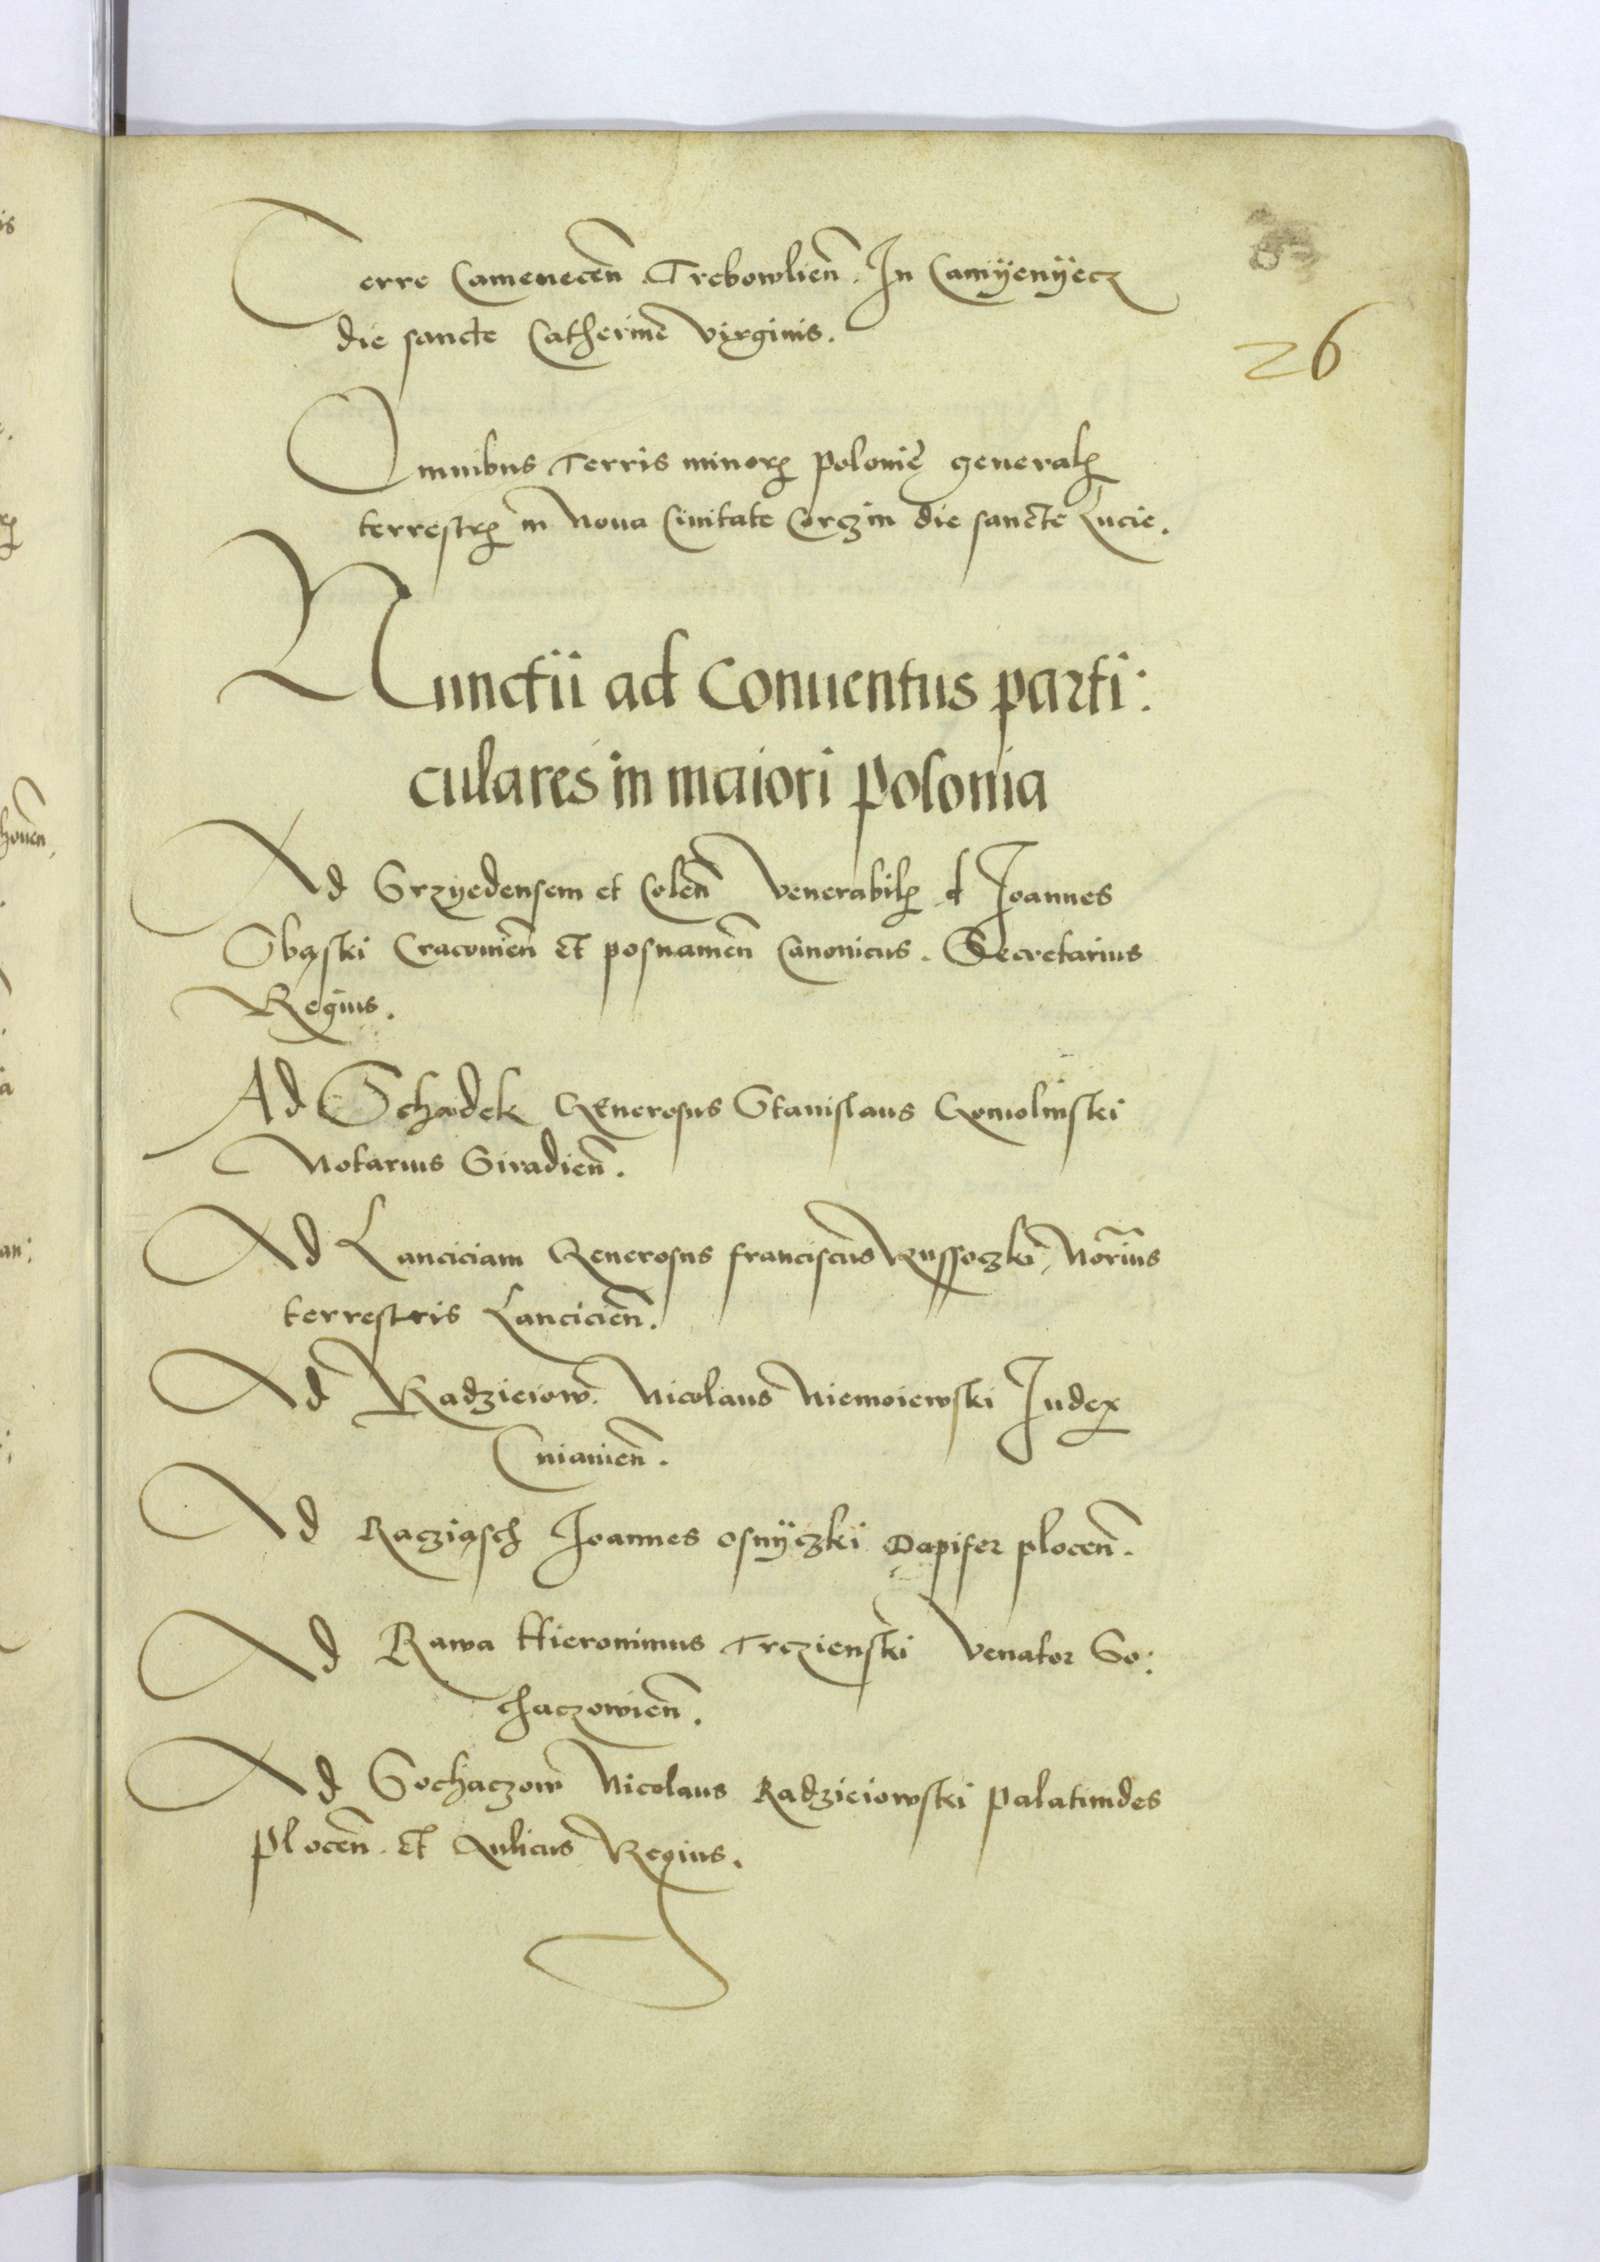 26
Terre Camenecen̄ Trebowlien̄. In Camÿenÿecz
die sancte Catherinę virginis.
Omnibus Terris minorꝭ polonię generalꝭ
terrestrꝭ in Noua Ciuitate Corczin die sanctę Lucie.
Nunctii ad Conuentus parti:
culares in maiori polonia
Ad Srzyedensem et Colen̄ Venerabilꝭ d Joannes
Obąski Cracouien̄ et posnanien̄ Canonicus. Secretarius
Regius.
Ad Schadek Generosus Stanislaus Gomolinski
Notarius Siradien̄.
Ad Lanciciam Generosus franciscus Russoczki Nor̄ius
terrestris Lancicien̄.
Ad Radzieiow. Nicolaus Niemoiewski Judex
Cuiauien̄.
Ad Racziąsch Joannes Osnÿczki Dapifer plocen̄.
Ad Rawa Hieronimus Trczienski Venator So:
chaczowien̄.
Ad Sochaczow Nicolaus Radzieiowski palatinides
plocen̄. et Aulicus Regius.